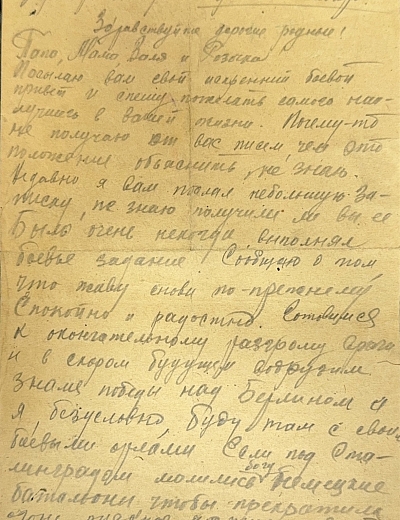 Здравствуйте дорогие родные!
Папа, Мама, Валя и
Посылаю вам свой искренний боевой
привет и спешу пожелать самого наи-
лучшего в вашей жизни. Почему-то
не получаю от вас писем, чем это
положение объяснить, не знаю.
Недавно я вам послал небольшую за-
писку, не знаю получили ли вы ее
Было очень некогда, выполнял
боевые задание Сообщаю о том
что живу снова по-прежнему,
Спокойно и радостно. Готовимся
к окончательному разгрому врага
и в скором будущем водрузим
Знамя победы над Берлином и
я безусловно буду там с свои
боевыми орлами Если под Ста-
линградом молились богу немецкие
батальоны чтобы прекратила